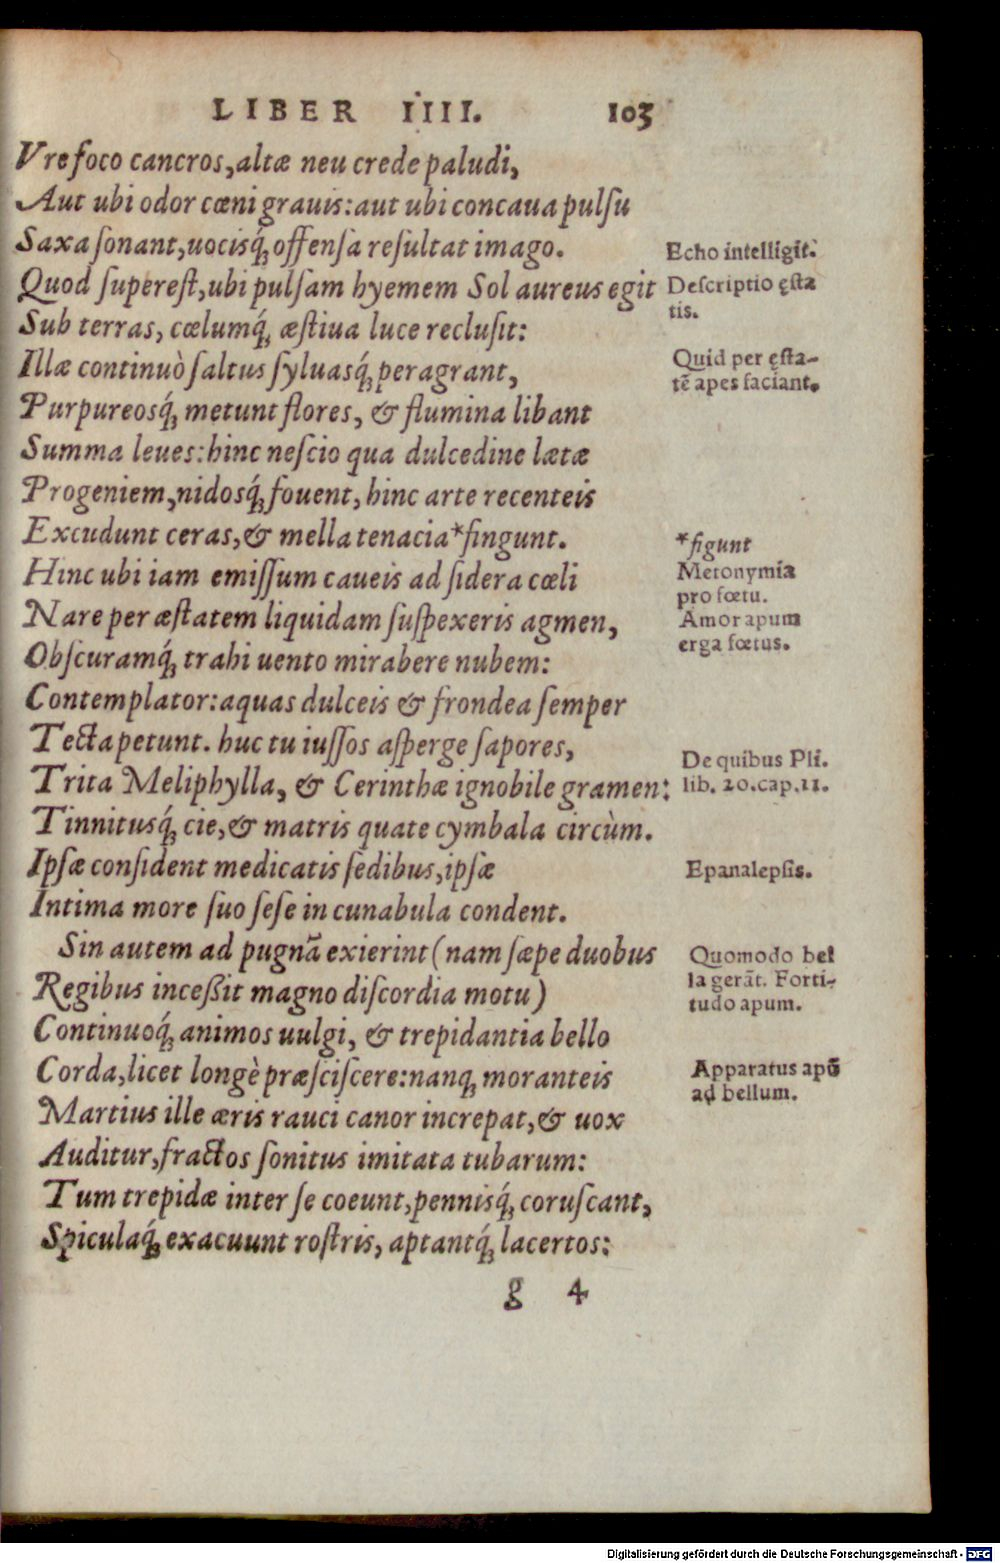 LIBER IIII. 103
Vre foco cancros, altæ neu crede paludi,
Aut ubi odor cœni grauis: aut ubi concaua pulſu
Saxa ſonant, uocisq́; offenſa reſultat imago.
Echo intelligit.
Quod ſupereſt, ubi pulſam hyemem Sol aureus egit
Deſcriptio ęſta
tis.
Sub terras, cœlumq́; æſtiua luce recluſit:
Illæ continuò ſaltus ſyluasq́; peragrant,
Quid per ęſta-
tē apes faciant.
Purpureosq́; metunt flores, & flumina libant
Summa leues: hinc neſcio qua dulcedine lætæ
Progeniem, nidosq́; fouent, hinc arte recenteis
Excudunt ceras, & mella tenacia *fingunt.
*figunt
Hinc ubi iam emiſſum caueis ad ſidera cœli
Metonymia
pro fœtu.
Nare per æſtatem liquidam ſuſpexeris agmen,
Amor apum
erga fœtus.
Obſcuramq́; trahi uento mirabere nubem:
Contemplator: aquas dulceis & frondea ſemper
Tecta petunt. huc tu iuſſos aſperge ſapores,
Trita Meliphylla, & Cerinthæ ignobile gramen:
De quibus Pli.
lib. 20. cap. 11.
Tinnitusq́; cie, & matris quate cymbala circùm.
Ipſæ conſident medicatis ſedibus, ipſæ
Epanalepſis.
Intima more ſuo ſeſe in cunabula condent.
Sin autem ad pugnã exierint (nam ſæpe duobus
Quomodo bel
la gerãt. Forti-
tudo apum.
Regibus inceßit magno diſcordia motu)
Continuoq́; animos uulgi, & trepidantia bello
Corda, licet longè præſciſcere: nanq; moranteis
Apparatus apũ
ad bellum.
Martius ille æris rauci canor increpat, & uox
Auditur, fractos ſonitus imitata tubarum:
Tum trepidæ inter ſe coeunt, pennisq́; coruſcant,
Spiculaq́; exacuunt roſtris, aptantq́; lacertos:
g 4
Digitalisierung gefördert durch die Deutsche Forschungsgemeinschaft - DFG